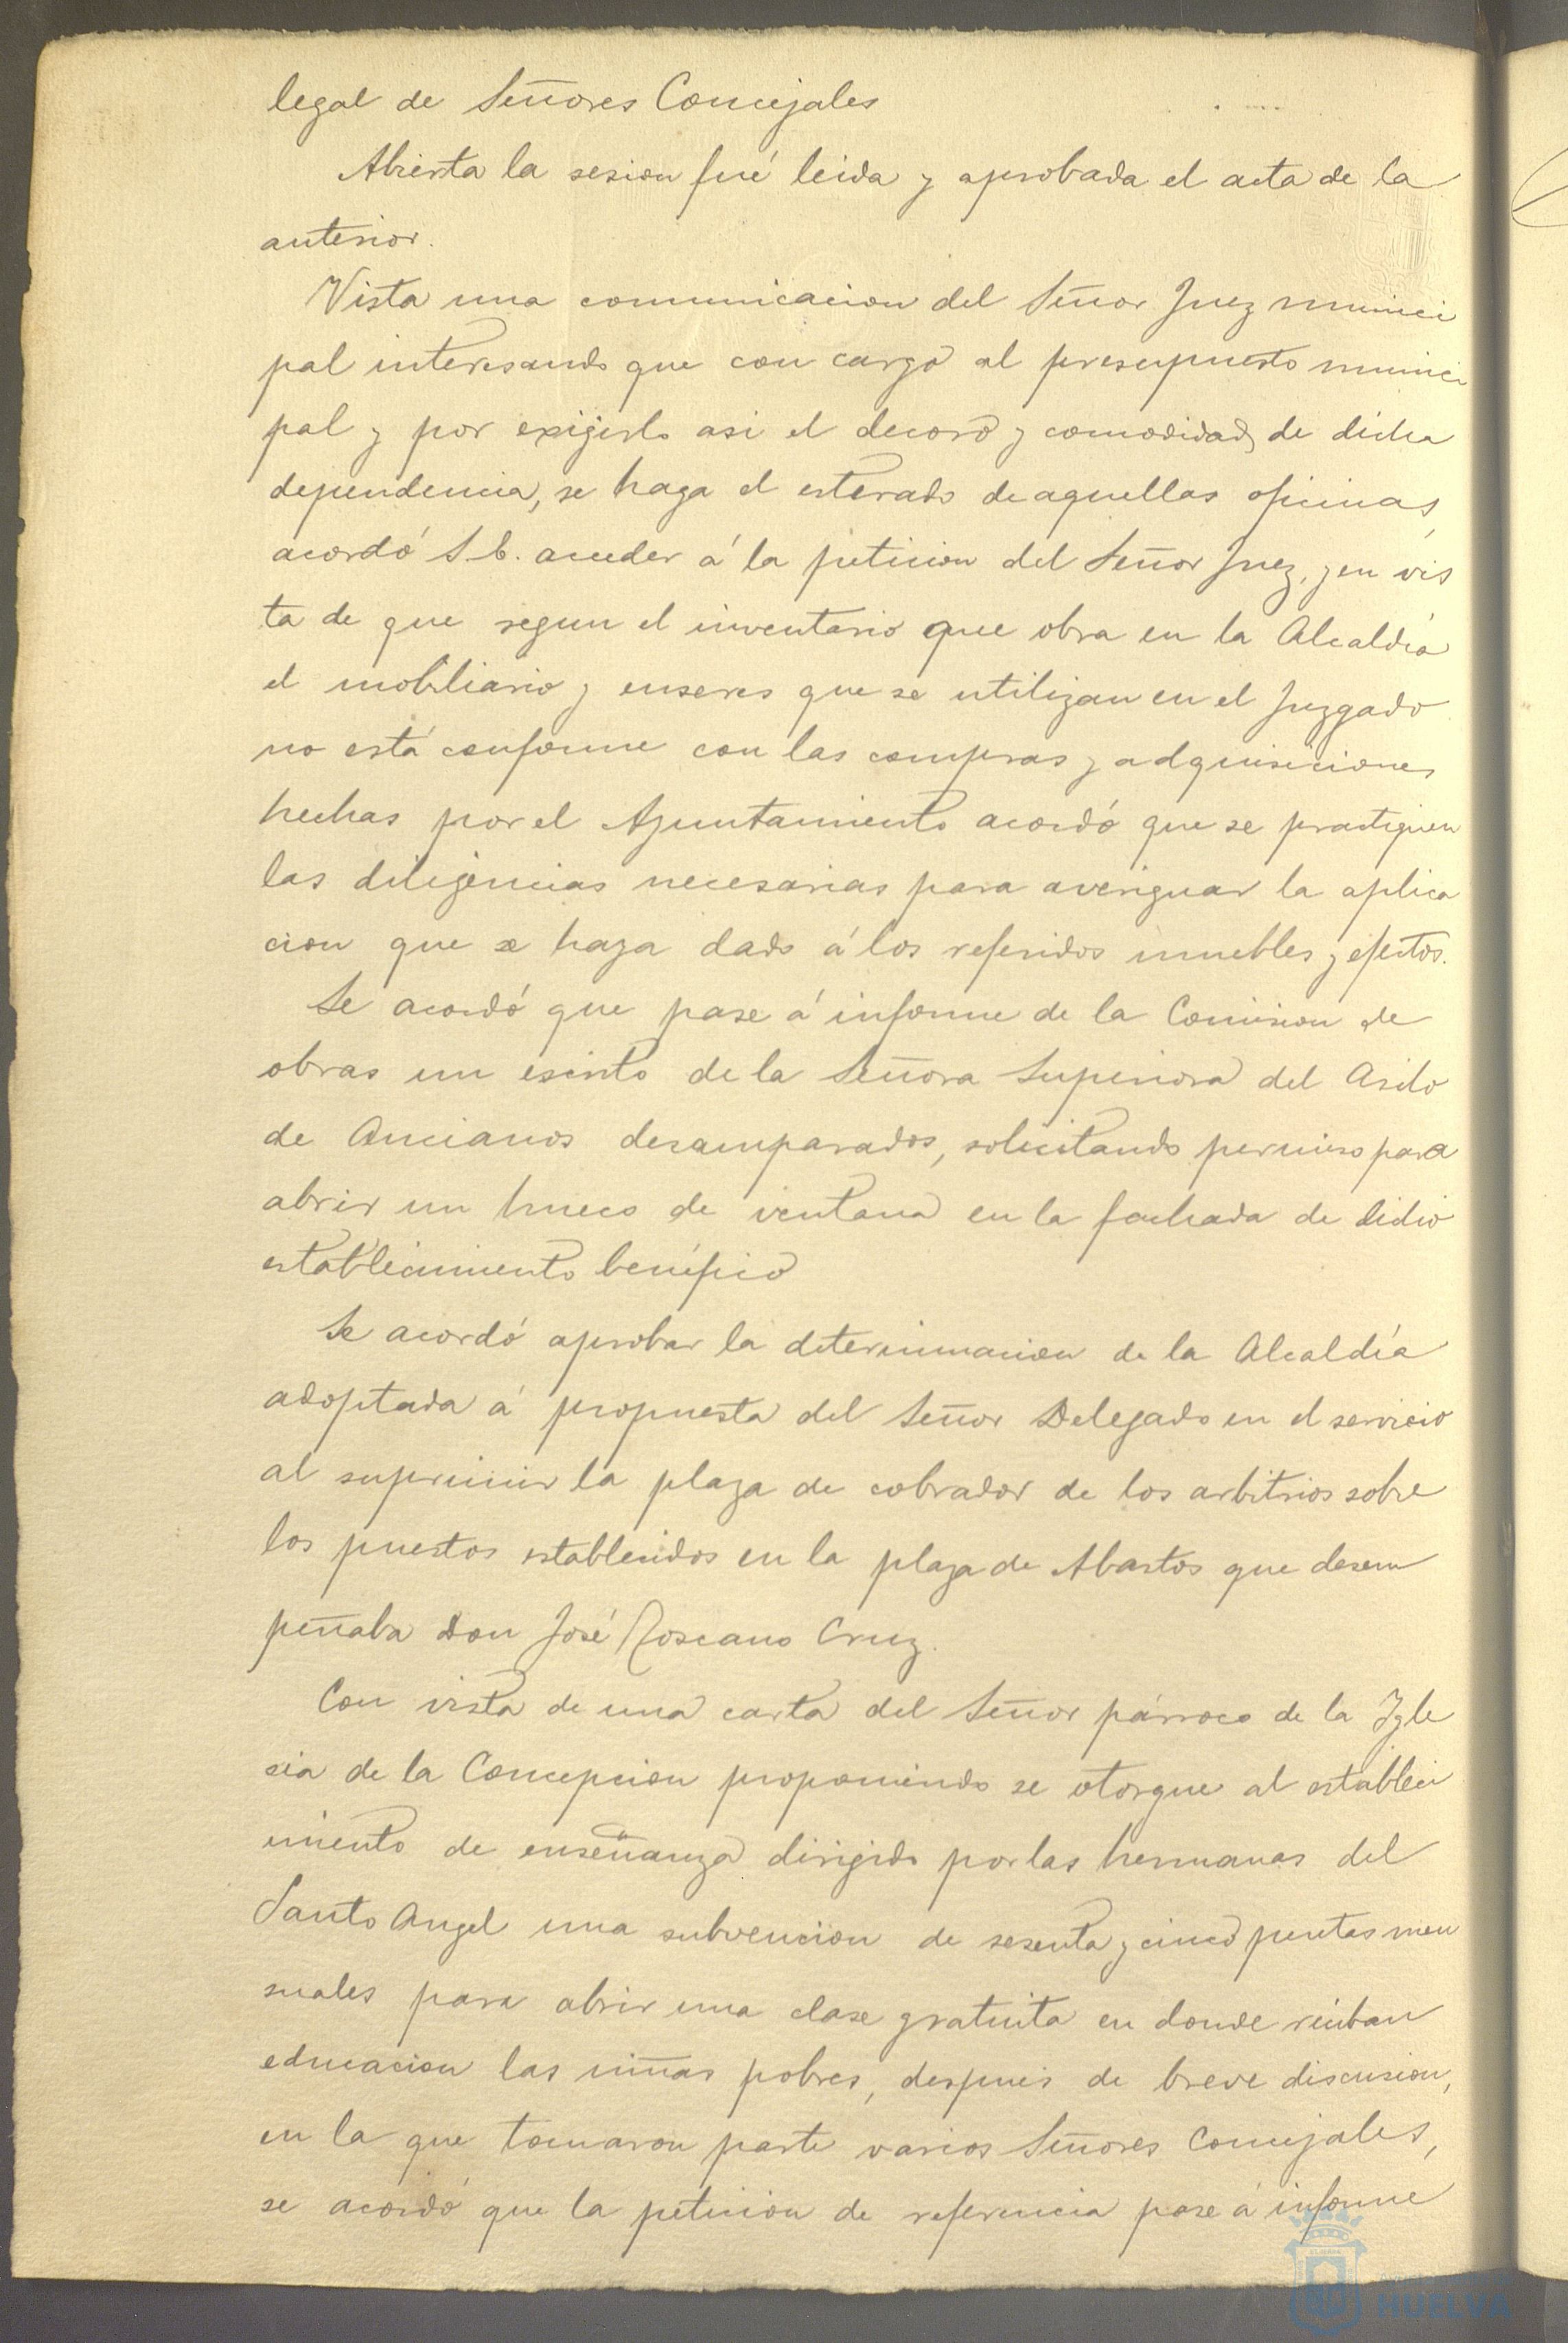 legal de Señores Concejales
Abierta la sesion fué leida y aprobada el acta de la
anterior.
Vista una comunicacion del Señor Juez munici
pal interesando que con cargo al presupuesto munici
pal y por exijirlo asi el decoro y comodidad de dicha
dependencia, se haga el esterado de aquellas oficinas,
acordó S. E. acceder á la peticion del Señor Juez, y en vis
ta de que segun el inventario que obra en la Alcaldia
el mobiliario y enseres que se utilizan en el Juzgado
no está conforme con las compras y adquisiciones
hechas por el Ajuntamiento acordó que se practiquen
las diligencias necesarias para averiguar la aplica
cion que se haya dado á los referidos muebles y efectos.
Se acordó que pase á informe de la Comision de
obras un escrito de la Señora Superiora del Asilo
de Ancianos desamparados, solicitando permiso para
abrir un hueco de ventana en la fachada de dicho
establecimiento benéfico
Se acordó aprobar la determinacion de la Alcaldía
adoptada á propuesta del Señor Delegado en el servicio
al suprimir la plaza de cobrador de los arbitrios sobre
los puestos establecidos en la plaza de Abastos que desem
peñaba Don José Toscano Cruz.
Con vista de una carta del Señor párroco de la Ygle
sia de la Concepcion proponiendo se otorgue al estableci
miento de enseñanza dirigido por las hermanas del
Santo Angel una subvencion de sesenta y cinco pesetas men
suales para abrir una clase gratuita en donde reciban
educacion las niñas pobres, despues de breve discusion,
en la que tomaron parte varios Señores Concejales,
se acordó que la peticion de referencia pase á informe
HUELVA